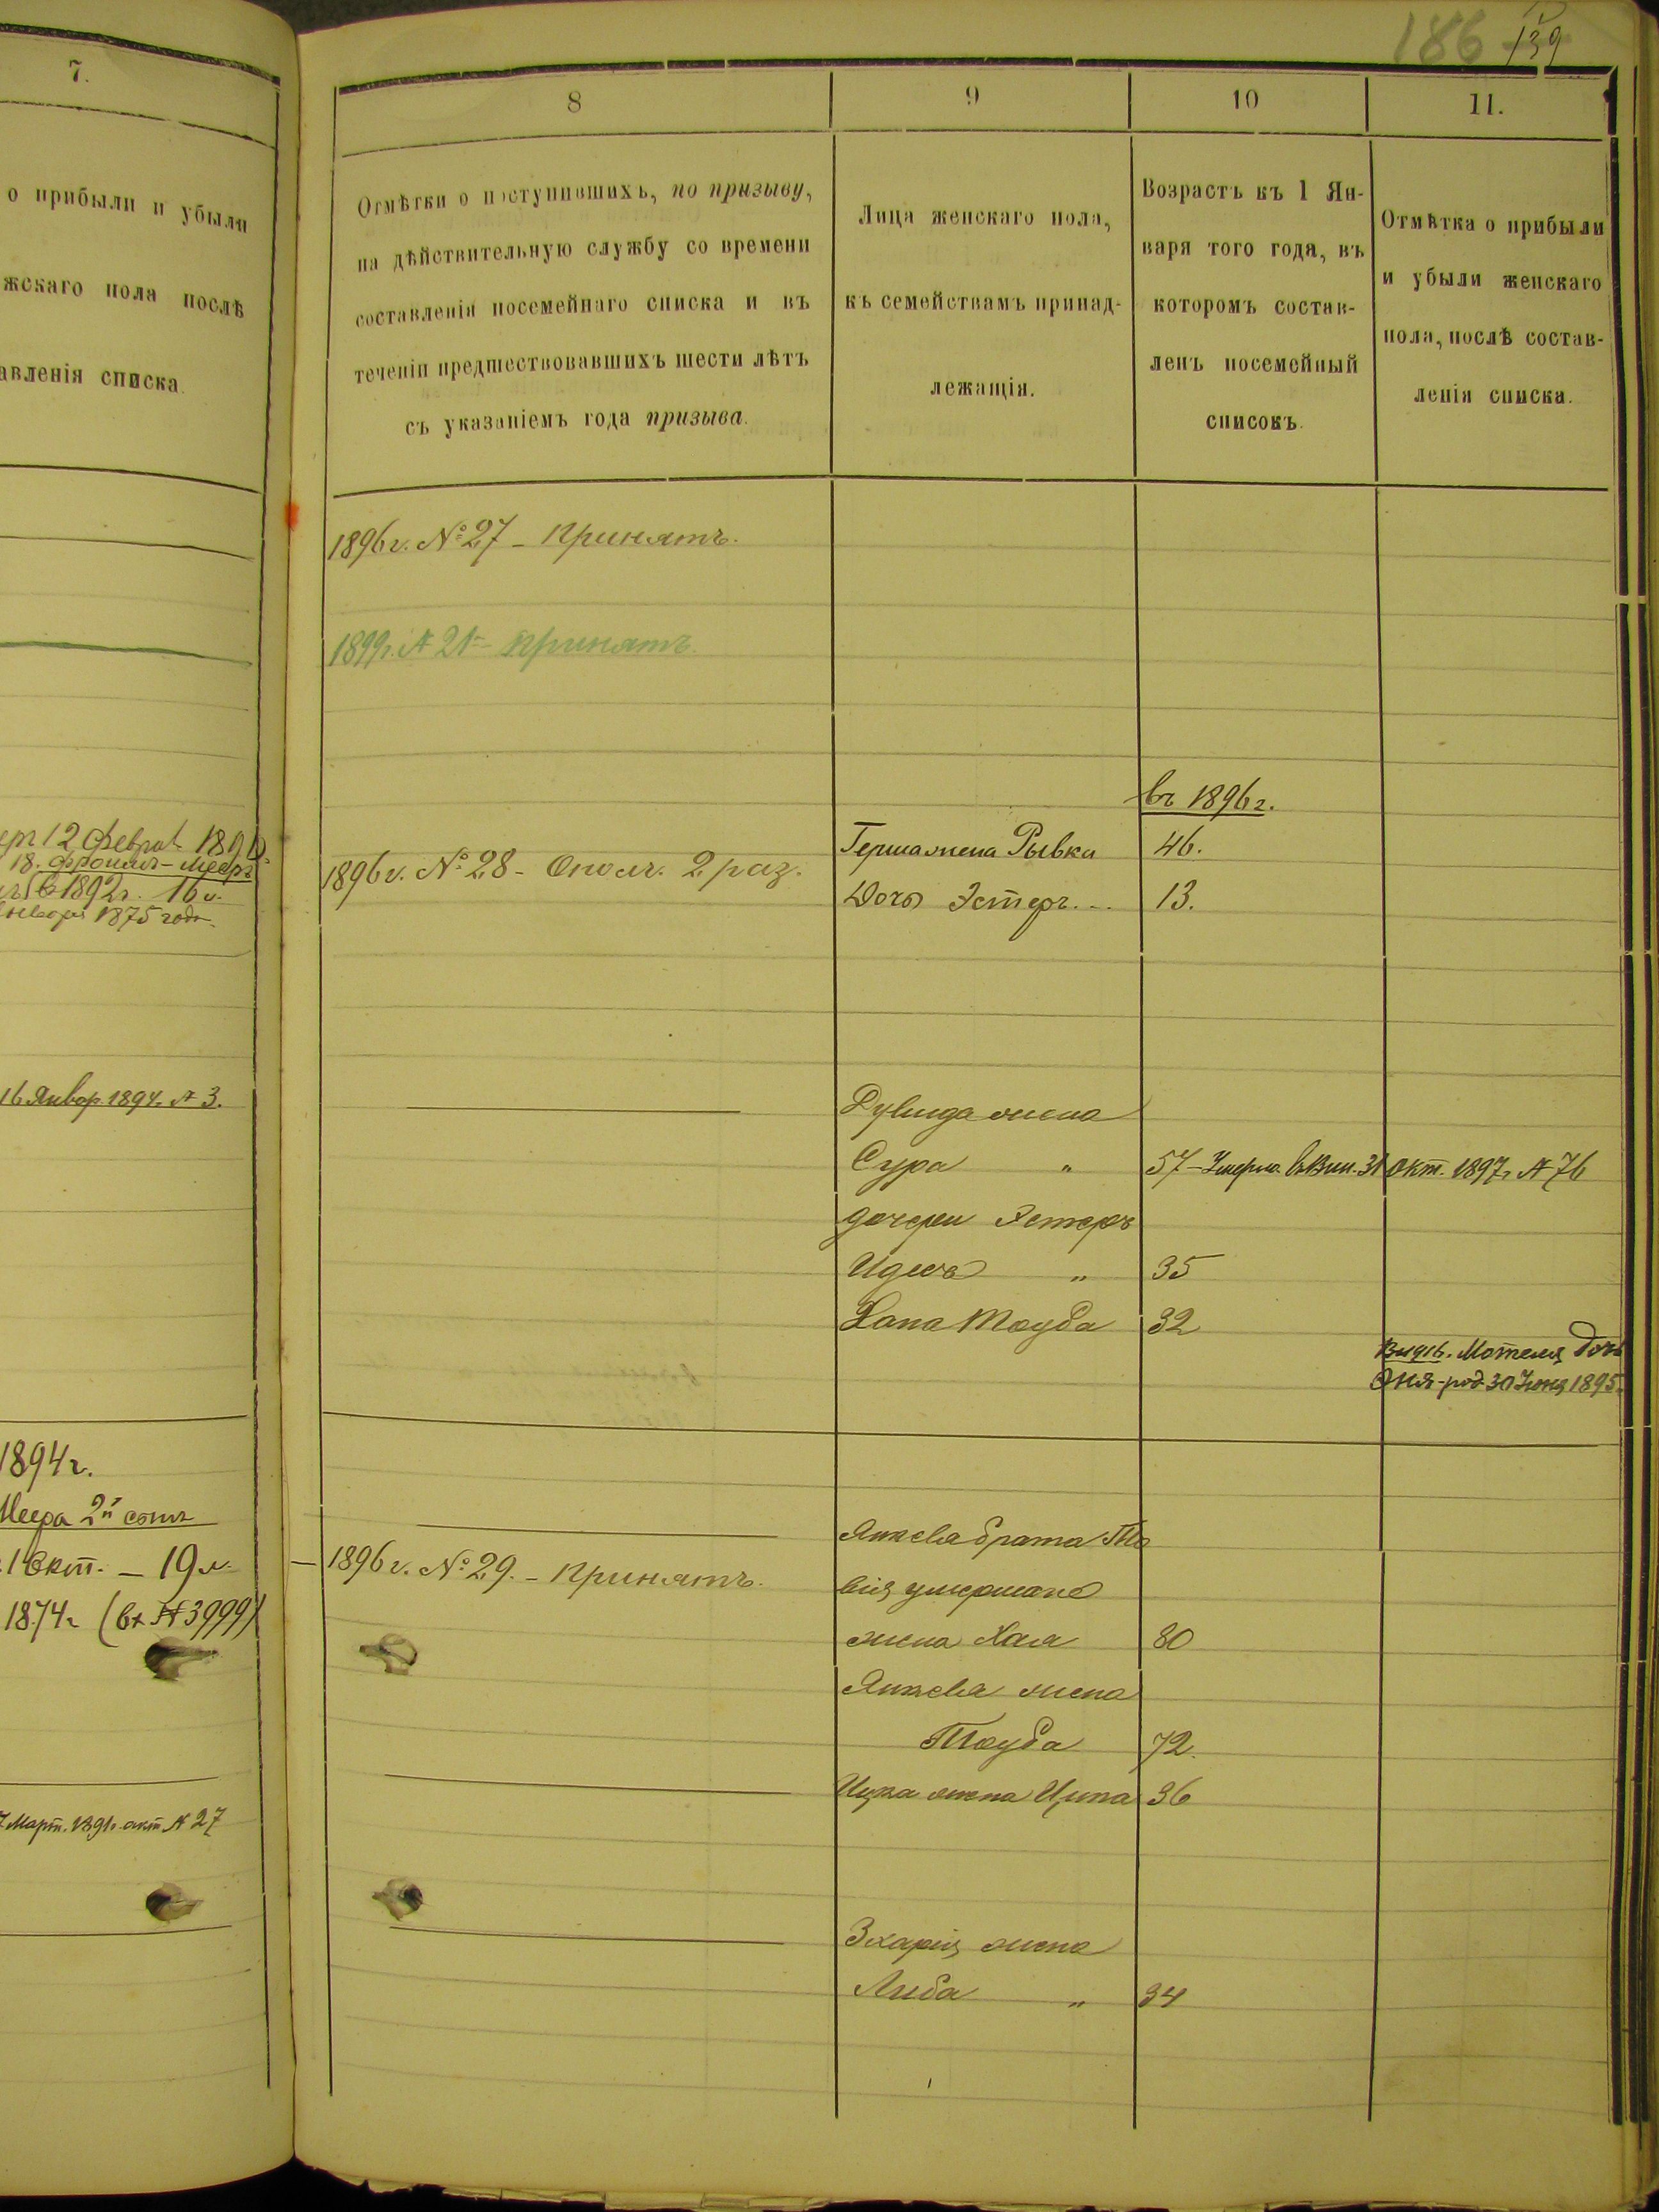 7.
о прибыли и убыли
жскаго пола послѣ
авленія списка.
12 Феврал. 18
18.
1892г. 16 л.
1875 года
16 Январ. 1894 г. № 3.
1894 г.
Меера 2й сынъ
1 Окт. – 19 л.
1874 г. (вх № 3999)
Март. 1891 г. акт № 27
186 139
8
9
10
11.
Отмѣтки о поступившихъ, по призыву,
на дѣйствительную службу со времени
составленія посемейнаго списка и въ
теченіи предшествовавшихъ шести лѣтъ
съ указаніемъ года призыва.
Лица женскаго пола,
къ семействамъ принад-
лежащія.
Возрастъ къ 1 Ян-
варя того года, въ
которомъ состав-
ленъ посемейный
списокъ.
Отмѣтка о прибыли
и убыли женскаго
пола, послѣ состав-
ленія списка.
1896 г. № 27 – Принятъ.
1899 г. № 21 – Принятъ.
въ 1896 г.
Герша жена Рывка 46.
1896 г. № 28 – Ополч. 2 раз.
Дочь Эстеръ 13.
Рувида жена
Сура " 57 – Умерла въ Вил. 31 Окт. 1897 г. № 76
дочери Эстеръ
Идесъ " 35
Хана Тауба 32
Вид. Мотеля дочь
род. 30 Іюня 1895 г.
Янкеля брата То
1896 г. № 29. – Принятъ.
вія умершаго
жена Хая 80
Янкеля жена
Тауба 72.
Ицка жена Ципа 36
Зхарія жена
Либа " 34